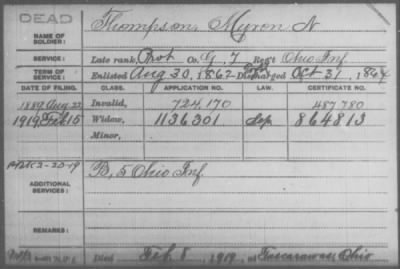 DEAD
NAME OF SOLDIER: Thompson, Myron N
SERVICE: Late rank, Co. G, 7 Reg't Ohio Inf.
TERM OF SERVICE: Enlisted Aug 30, 1862 Discharged Oct 31, 1864
DATE OF FILING. CLASS. APPLICATION NO. LAW. CERTIFICATE NO.
1889 Aug 22 Invalid, 724,170 487,780
1919, Feb 15 Widow, 1136301 Sep 864813
Minor,
2-20-19
ADDITIONAL SERVICES: B, 5 Ohio Inf.
REMARKS:
Died Feb 8, 1919, at Tuscarawas, Ohio